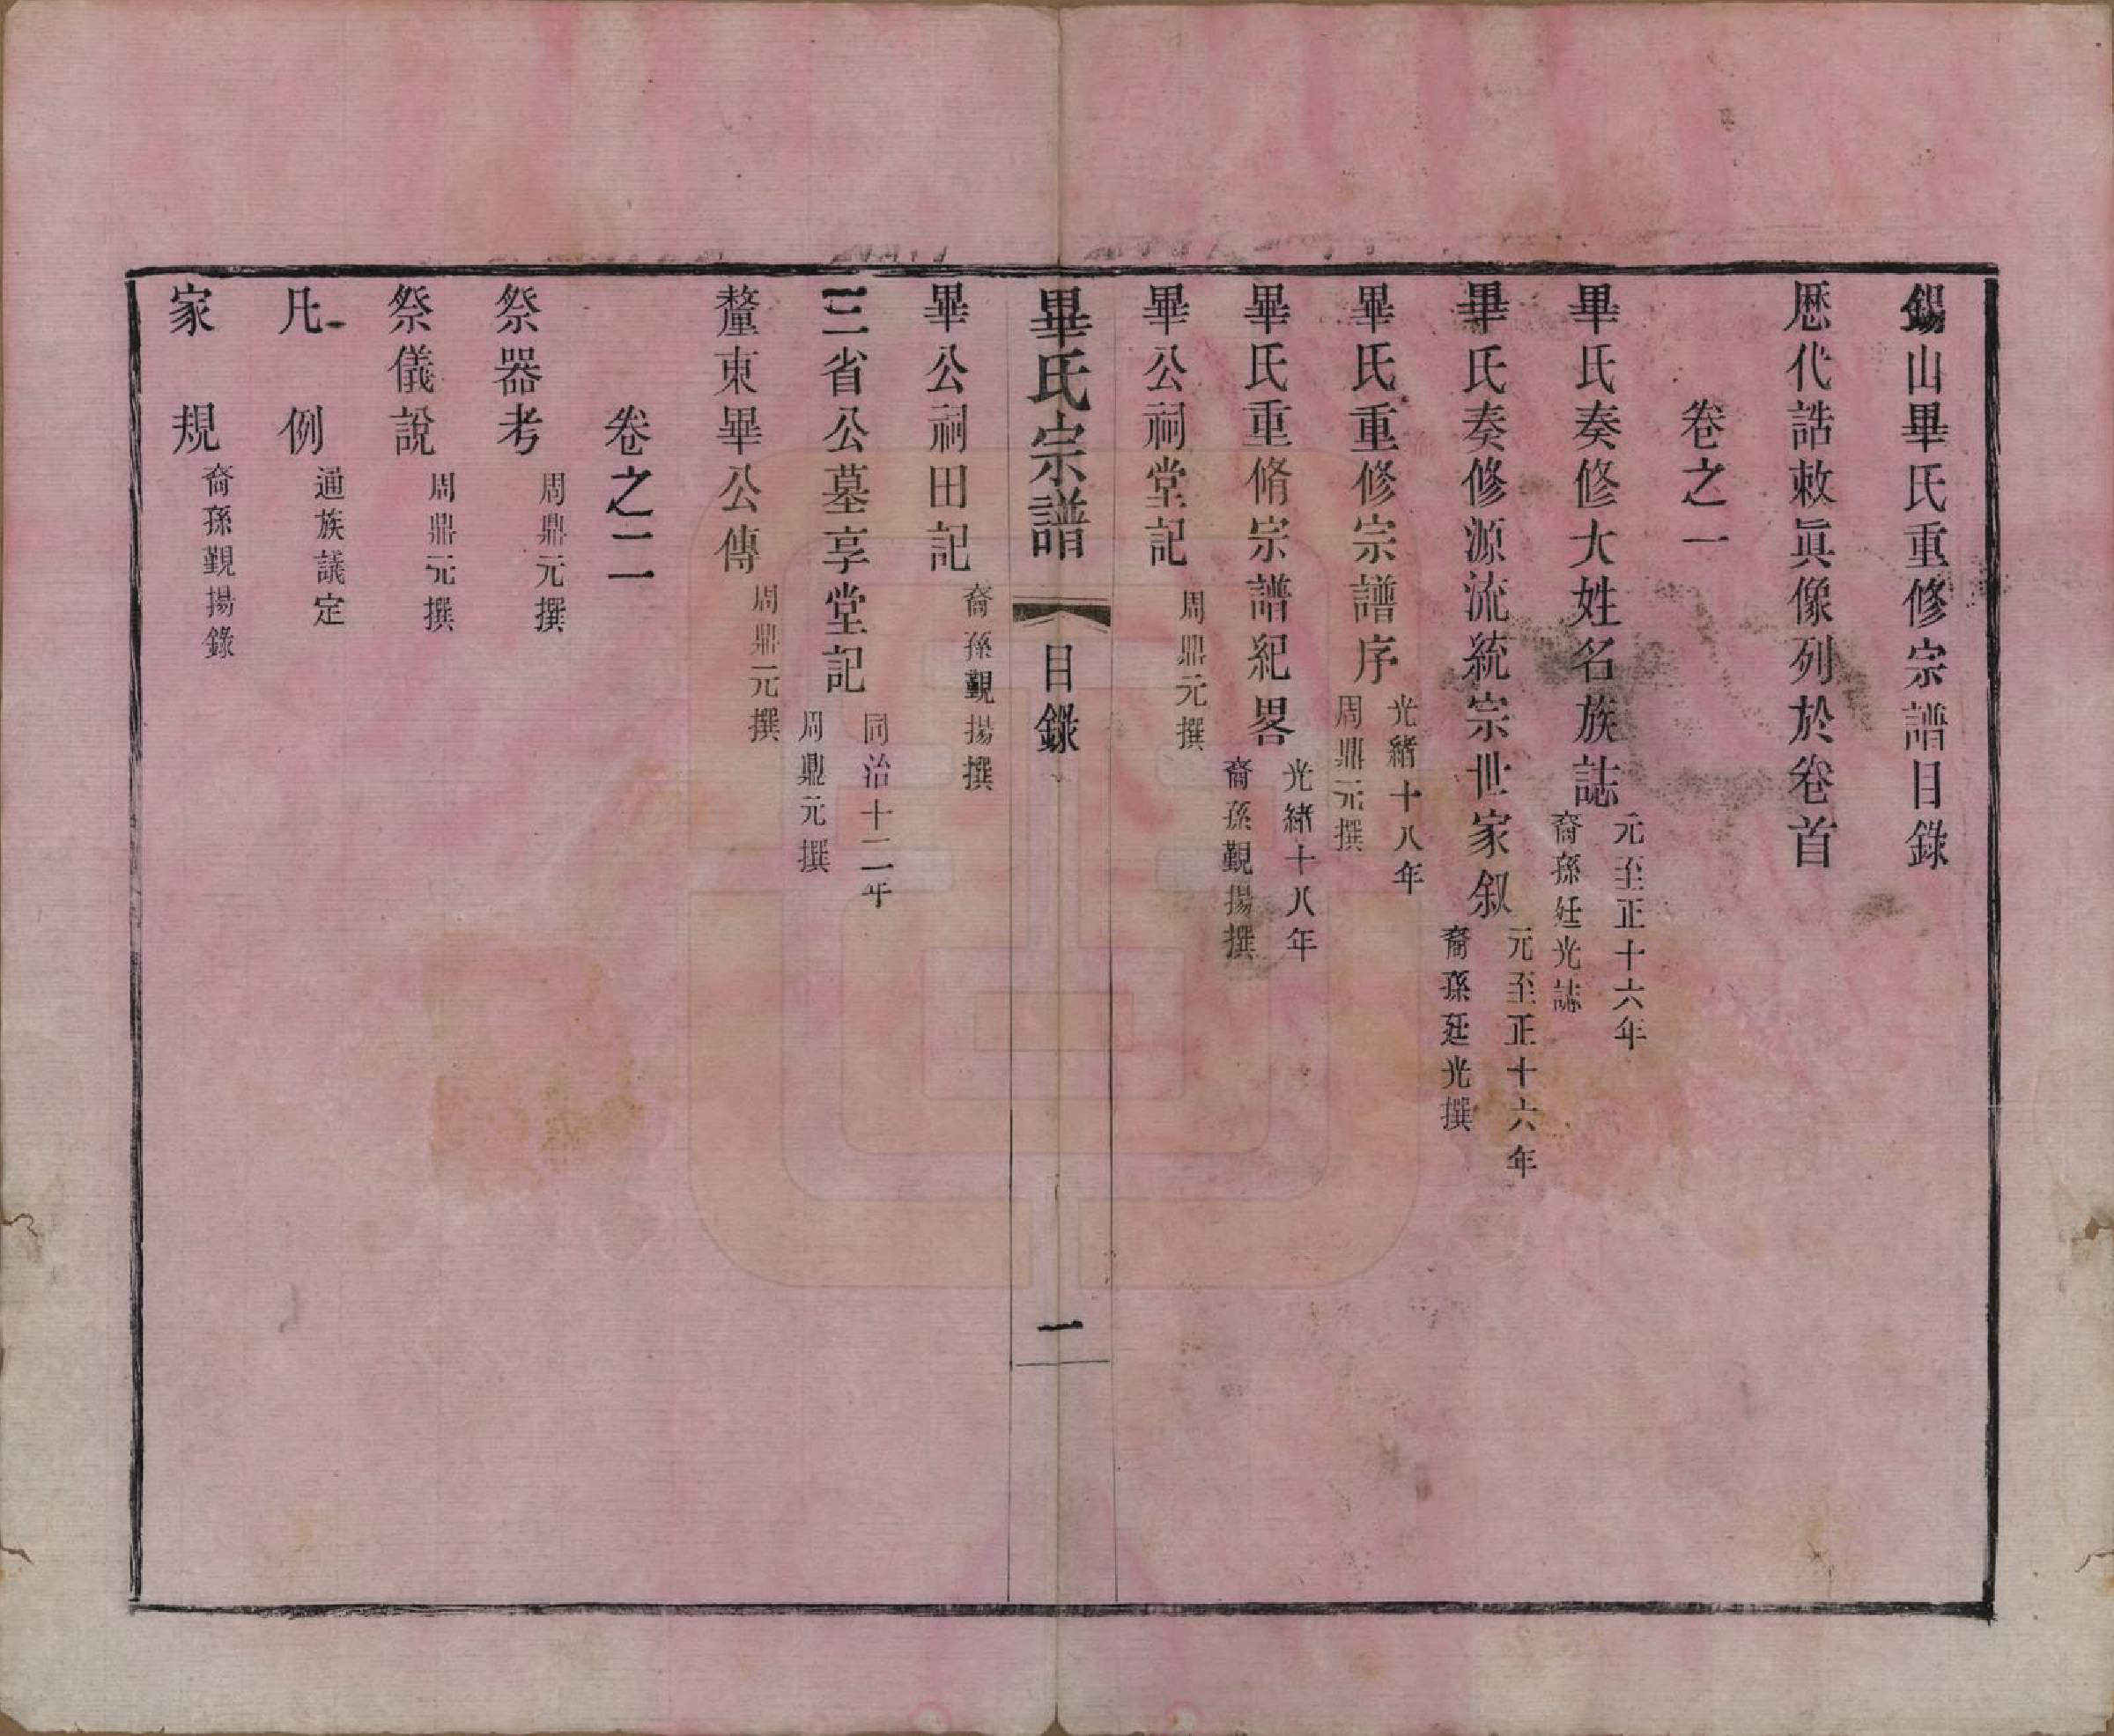 錫山畢氏重修宗譜目錄
歷代誥敕眞像列於卷首
卷之一
畢氏奏修大姓名族誌 元至正十六年 裔孫廷光誌
畢氏奏修源流統宗世家叙 元至正十六年 裔孫廷光撰
畢氏重修宗譜序 光緒十八年 周鼎元撰
畢氏重脩宗譜紀畧 光緒十八年 裔孫覲揚撰
畢公祠堂記 周鼎元撰
畢氏宗譜 目錄 一
畢公祠田記 裔孫覲揚撰
三省公墓享堂記 同治十二年 周鼎元撰
釐東畢公傳 周鼎元撰
卷之二
祭器考 周鼎元撰
祭儀說 周鼎元撰
凡例 通族議定
家規 裔孫覲揚錄